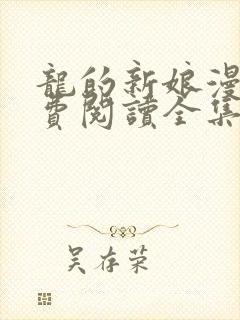 龍的新娘漫
費閱讀全集
吴存荣